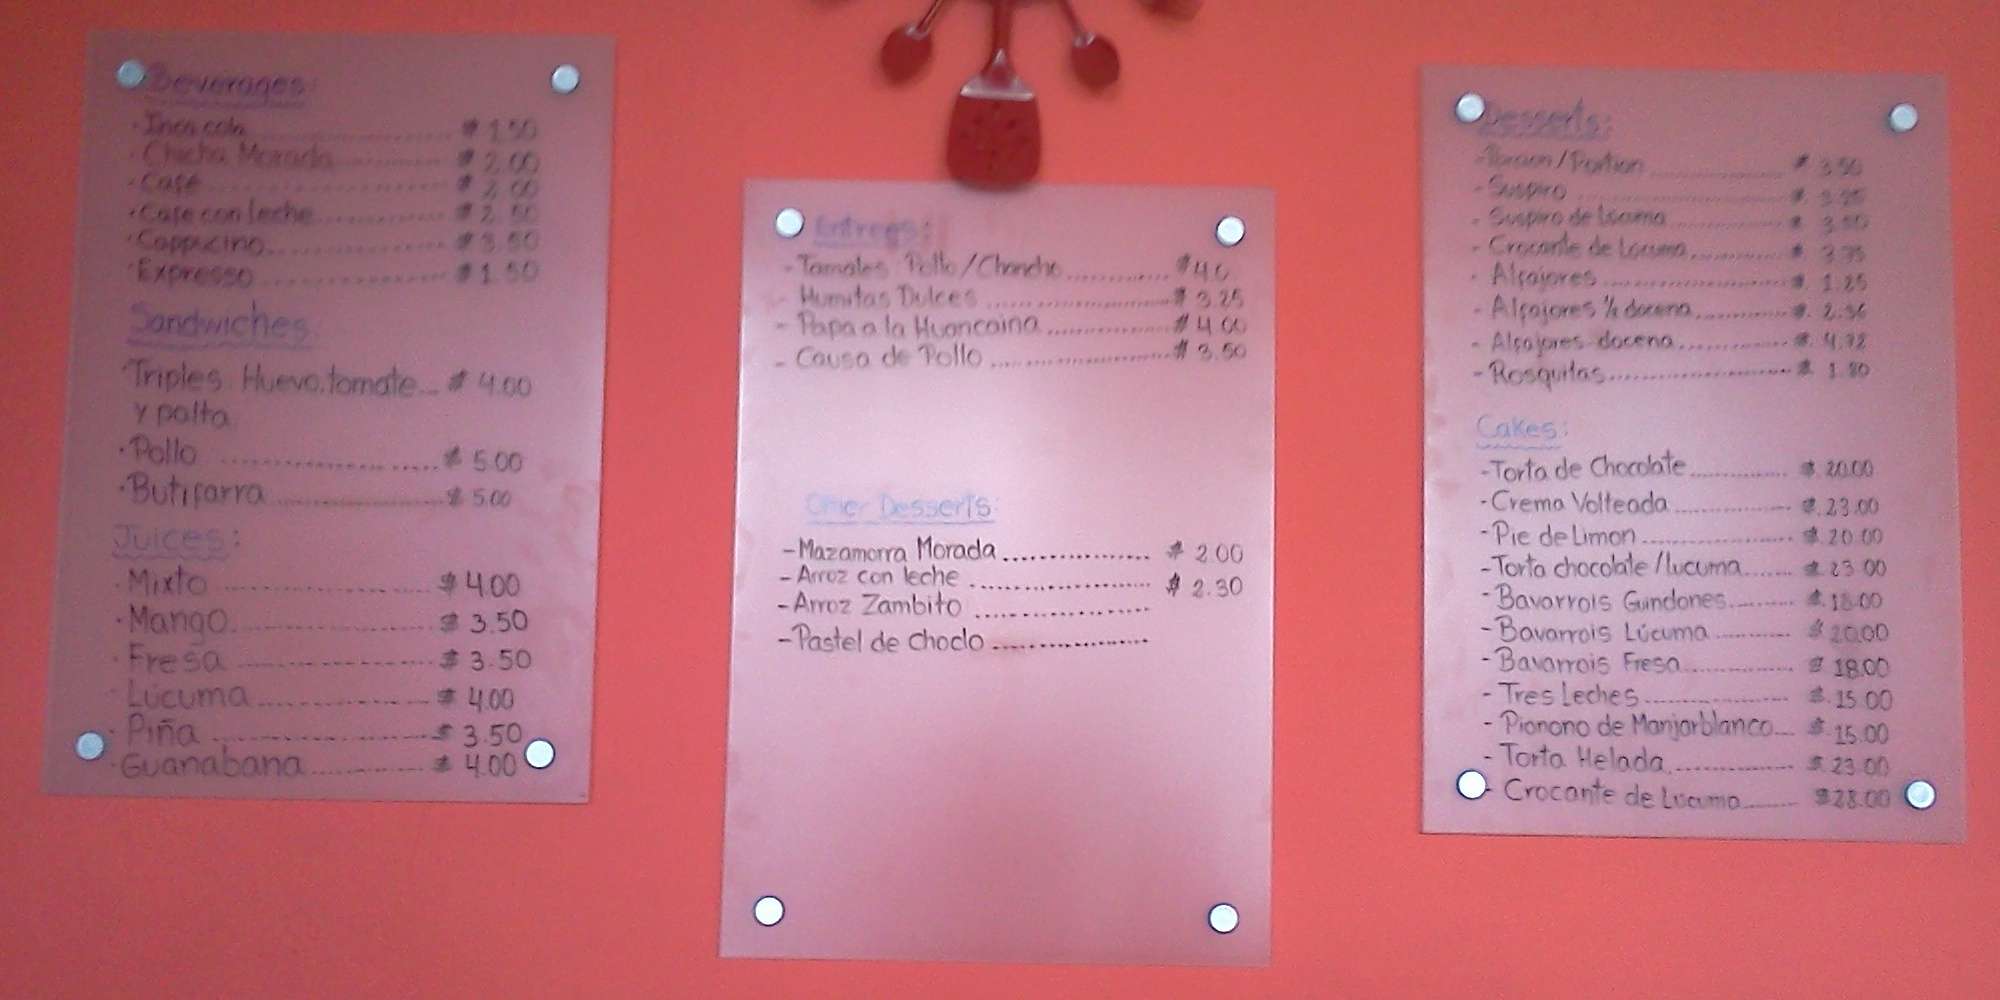 Beverages:
· Inca cola ........ $ 1.50
· Chicha Morada ........ $ 2.00
· Cafe ........ $ 2.00
· Cafe con leche ........ $ 2.50
· Cappucino ........ $ 3.50
· Expresso ........ $ 1.50
Sandwiches
· Triples Huevo, tomate ... $ 4.00
y palta
· Pollo ........ $ 5.00
· Butifarra ........ $ 5.00
Juices:
· Mixto ........ $ 4.00
· Mango ........ $ 3.50
· Fresa ........ $ 3.50
· Lúcuma ........ $ 4.00
· Piña ........ $ 3.50
· Guanabana ........ $ 4.00
Entrees:
- Tamales Pollo/Chancho ........ $ 4.0
- Humitas Dulces ........ $ 3.25
- Papa a la Huancaina ........ $ 4.00
- Causa de Pollo ........ $ 3.50
Other Desserts:
- Mazamorra Morada ........ $ 2.00
- Arroz con leche ........ $ 2.30
- Arroz Zambito ........
- Pastel de choclo ........
Desserts:
- Porcion/Portion ........ $ 3.50
- Suspiro ........ $
- Suspiro de Lucuma ........ $ 3.50
- Crocante de Lucuma ........ $ 3.75
- Alfajores ........ $ 1.25
- Alfajores ½ docena ........ $ 2.36
- Alfajores docena ........ $
- Rosquitas ........ $ 1.80
Cakes:
- Torta de Chocolate ........ $ 20.00
- Crema Volteada ........ $ 23.00
- Pie de Limon ........ $ 20.00
- Torta chocolate/lucuma ........ $ 23.00
- Bavarrois Guindones ........ $ 18.00
- Bavarrois Lúcuma ........ $ 20.00
- Bavarrois Fresa ........ $ 18.00
- Tres Leches ........ $ 15.00
- Pionono de Manjarblanco ... $ 15.00
- Torta Helada ........ $ 23.00
- Crocante de Lucuma ........ $ 28.00